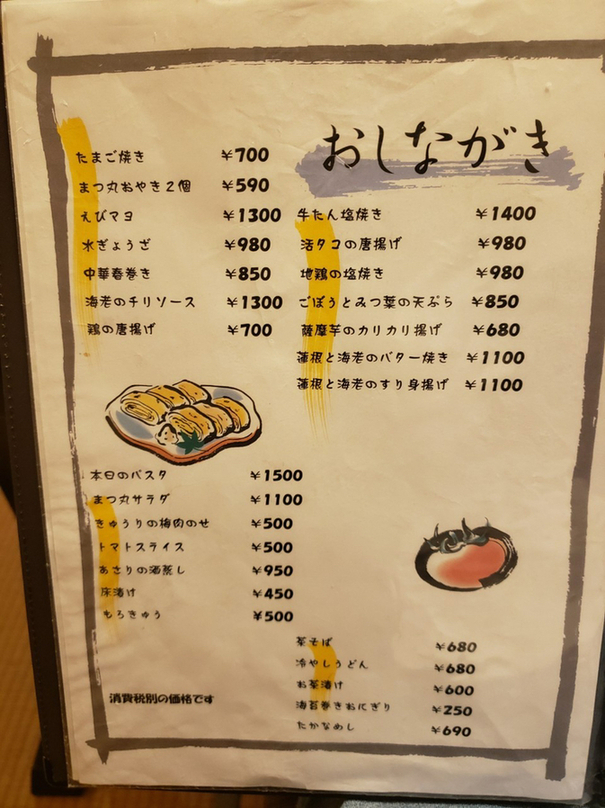 おしながき
たまご焼き ¥700
まつ丸おやき2個 ¥590
えびマヨ ¥1300
水ぎょうざ ¥980
中華春巻き ¥850
海老のチリソース ¥1300
鶏の唐揚げ ¥700
牛たん塩焼き ¥1400
活タコの唐揚げ ¥980
地鶏の塩焼き ¥980
ごぼうとみつ葉の天ぷら ¥850
薩摩芋のカリカリ揚げ ¥680
蓮根と海老のバター焼き ¥1100
蓮根と海老のすり身揚げ ¥1100
本日のパスタ ¥1500
まつ丸サラダ ¥1100
きゅうりの梅肉のせ ¥500
トマトスライス ¥500
あさりの酒蒸し ¥950
床漬け ¥450
もろきゅう ¥500
茶そば ¥680
冷やしうどん ¥680
お茶漬け ¥600
海苔巻きおにぎり ¥250
たかなめし ¥690
消費税別の価格です